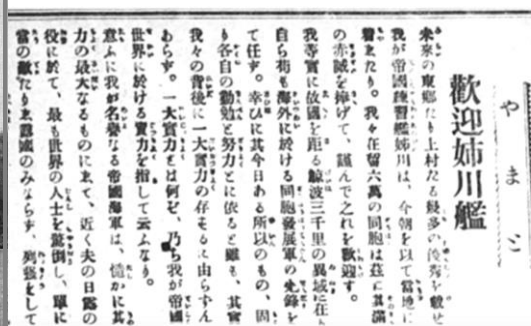 やまと
歓迎姉川艦
未来の東郷たり上村たる幾多の俊秀を載せ
我が帝國練習艦姉川は、今朝を以て當地に
着きたり。我々在留六萬の同胞は茲に其滿
の赤誠を捧げて、謹んで之れを歓迎す。
我等實に故國を距る鯨波三千里の異域に在り
自ら苟も海外に於ける同胞發展軍の先鋒を
て任す。幸ひに其今日ある所以のもの、固
り各自の勤勉と努力とに依ると雖も、其實
我々の背後に一大實力の存するに由らずん
あらず。一大實力とは何ぞ、乃ち我が帝國
世界に於ける實力を指して云ふなり。
意ふに我が名譽なる帝國海軍は、慥かに其
力の最大なるものにして、近く夫の日露の
役に於て、最も世界の人士を驚倒し、單に
當の敵たりし露國のみならず、列强をして